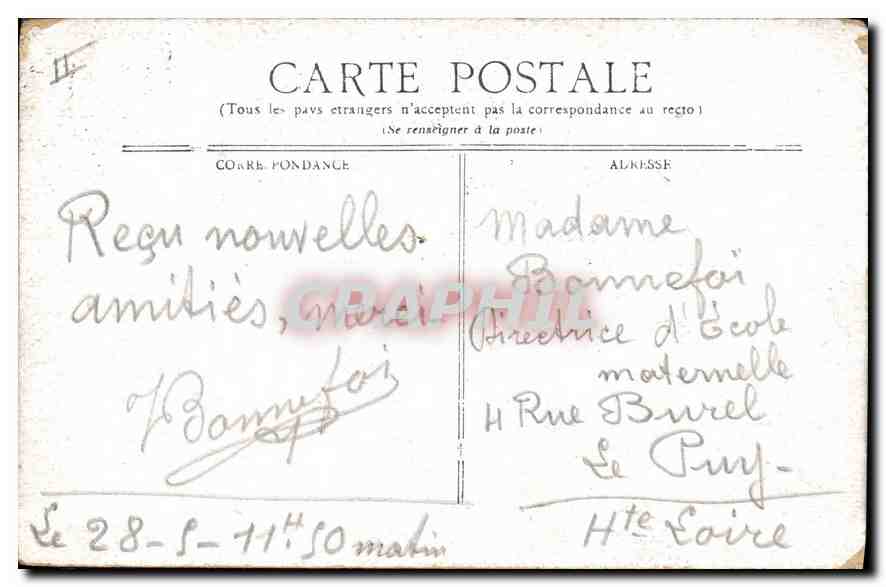 II.
CARTE POSTALE
(Tous les pays etrangers n'acceptent pas la correspondance au recto)
(Se renseigner à la poste)
CORRESPONDANCE
ADRESSE
Reçu nouvelles
amitiés, merci
Bonnefoi
Le 28-5-11H.50 matin
Madame
Bonnefoi
Directrice d'École
maternelle
4 Rue Burel
Le Puy-
Hte Loire
CPAPHIL